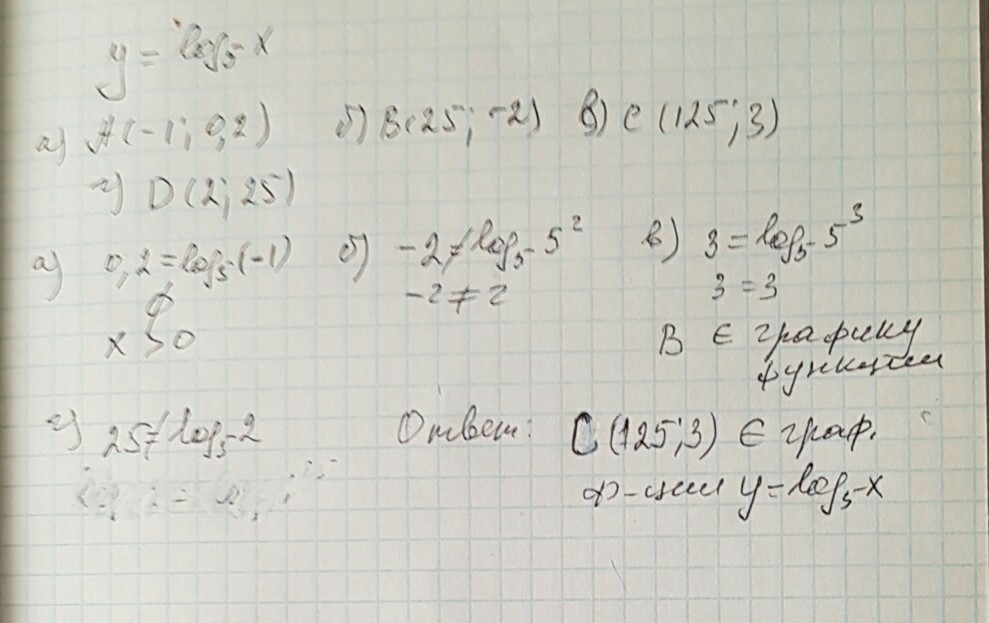 y = log₅ x
а) A(-1; 0,2) б) B(25; -2) в) C (125; 3)
г) D(2; 25)
а) 0,2 = log₅(-1) б) -2 ≠ log₅ 5² в) 3 = log₅ 5³
∅ -2 ≠ 2 3 = 3
x > 0 В ∈ графику
функции
г) 25 ≠ log₅ 2 Ответ: C (125; 3) ∈ граф.
ф-ции y = log₅ x